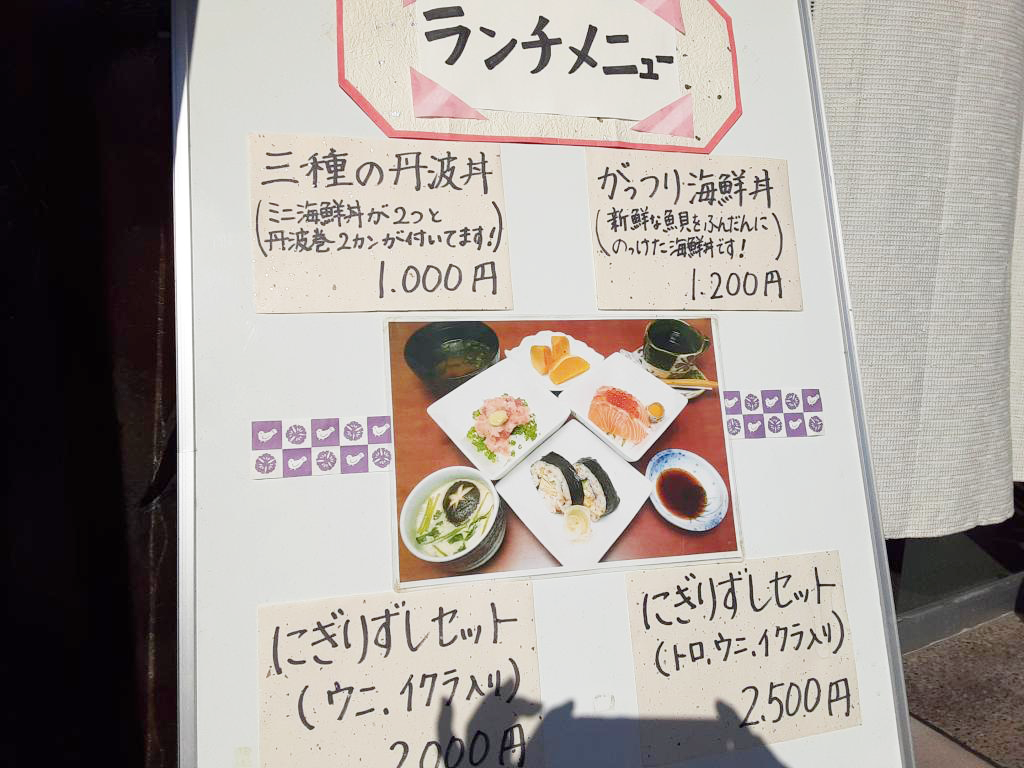 ランチメニュー
三種の丹波丼
(ミニ海鮮丼が2つと
丹波巻2カンが付いてます!)
1.000円
がっつり海鮮丼
(新鮮な魚貝をふんだんに
のっけた海鮮丼です!)
1.200円
にぎりずしセット
(ウニ.イクラ入り)
2.000円
にぎりずしセット
(トロ.ウニ.イクラ入り)
2.500円